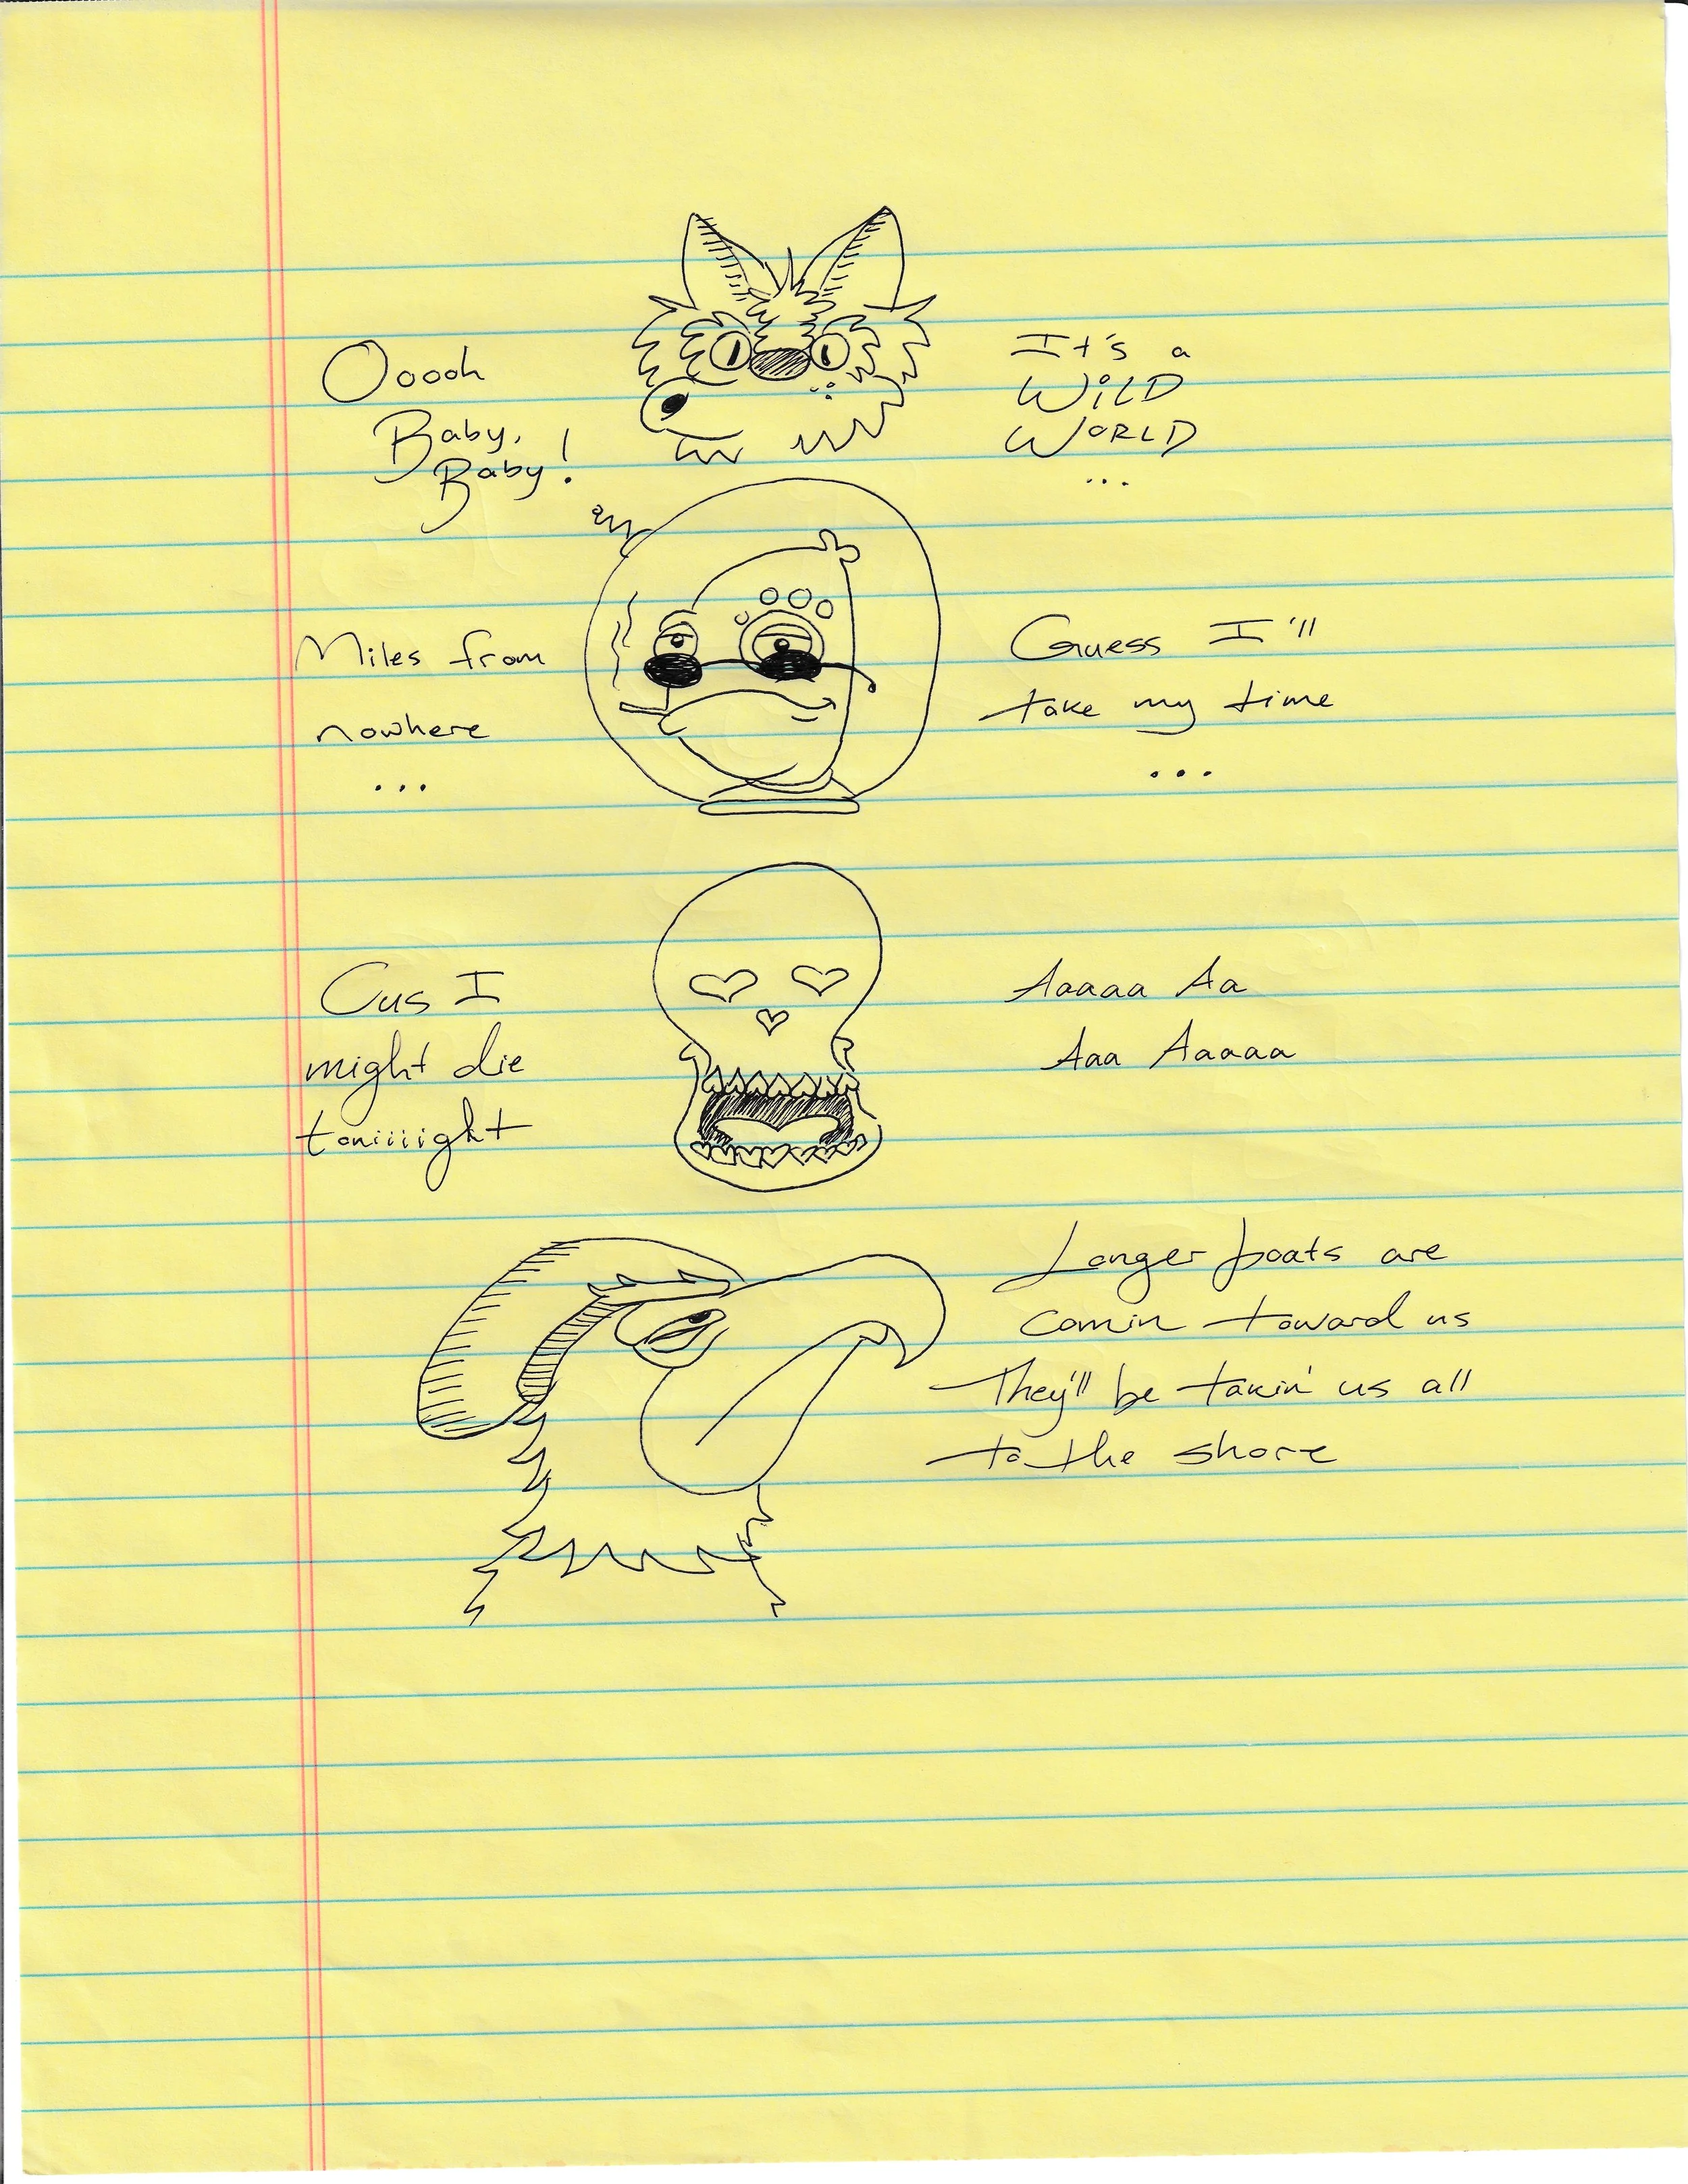 Ooooh
Baby,
Baby!
It's a
WiLD
WORLD
...
Miles from
nowhere
...
Guess I'll
take my time
...
Cus I
might die
toniiiight
Aaaaa Aa
Aaa Aaaaa
Longer boats are
comin toward us
They'll be takin' us all
to the shore